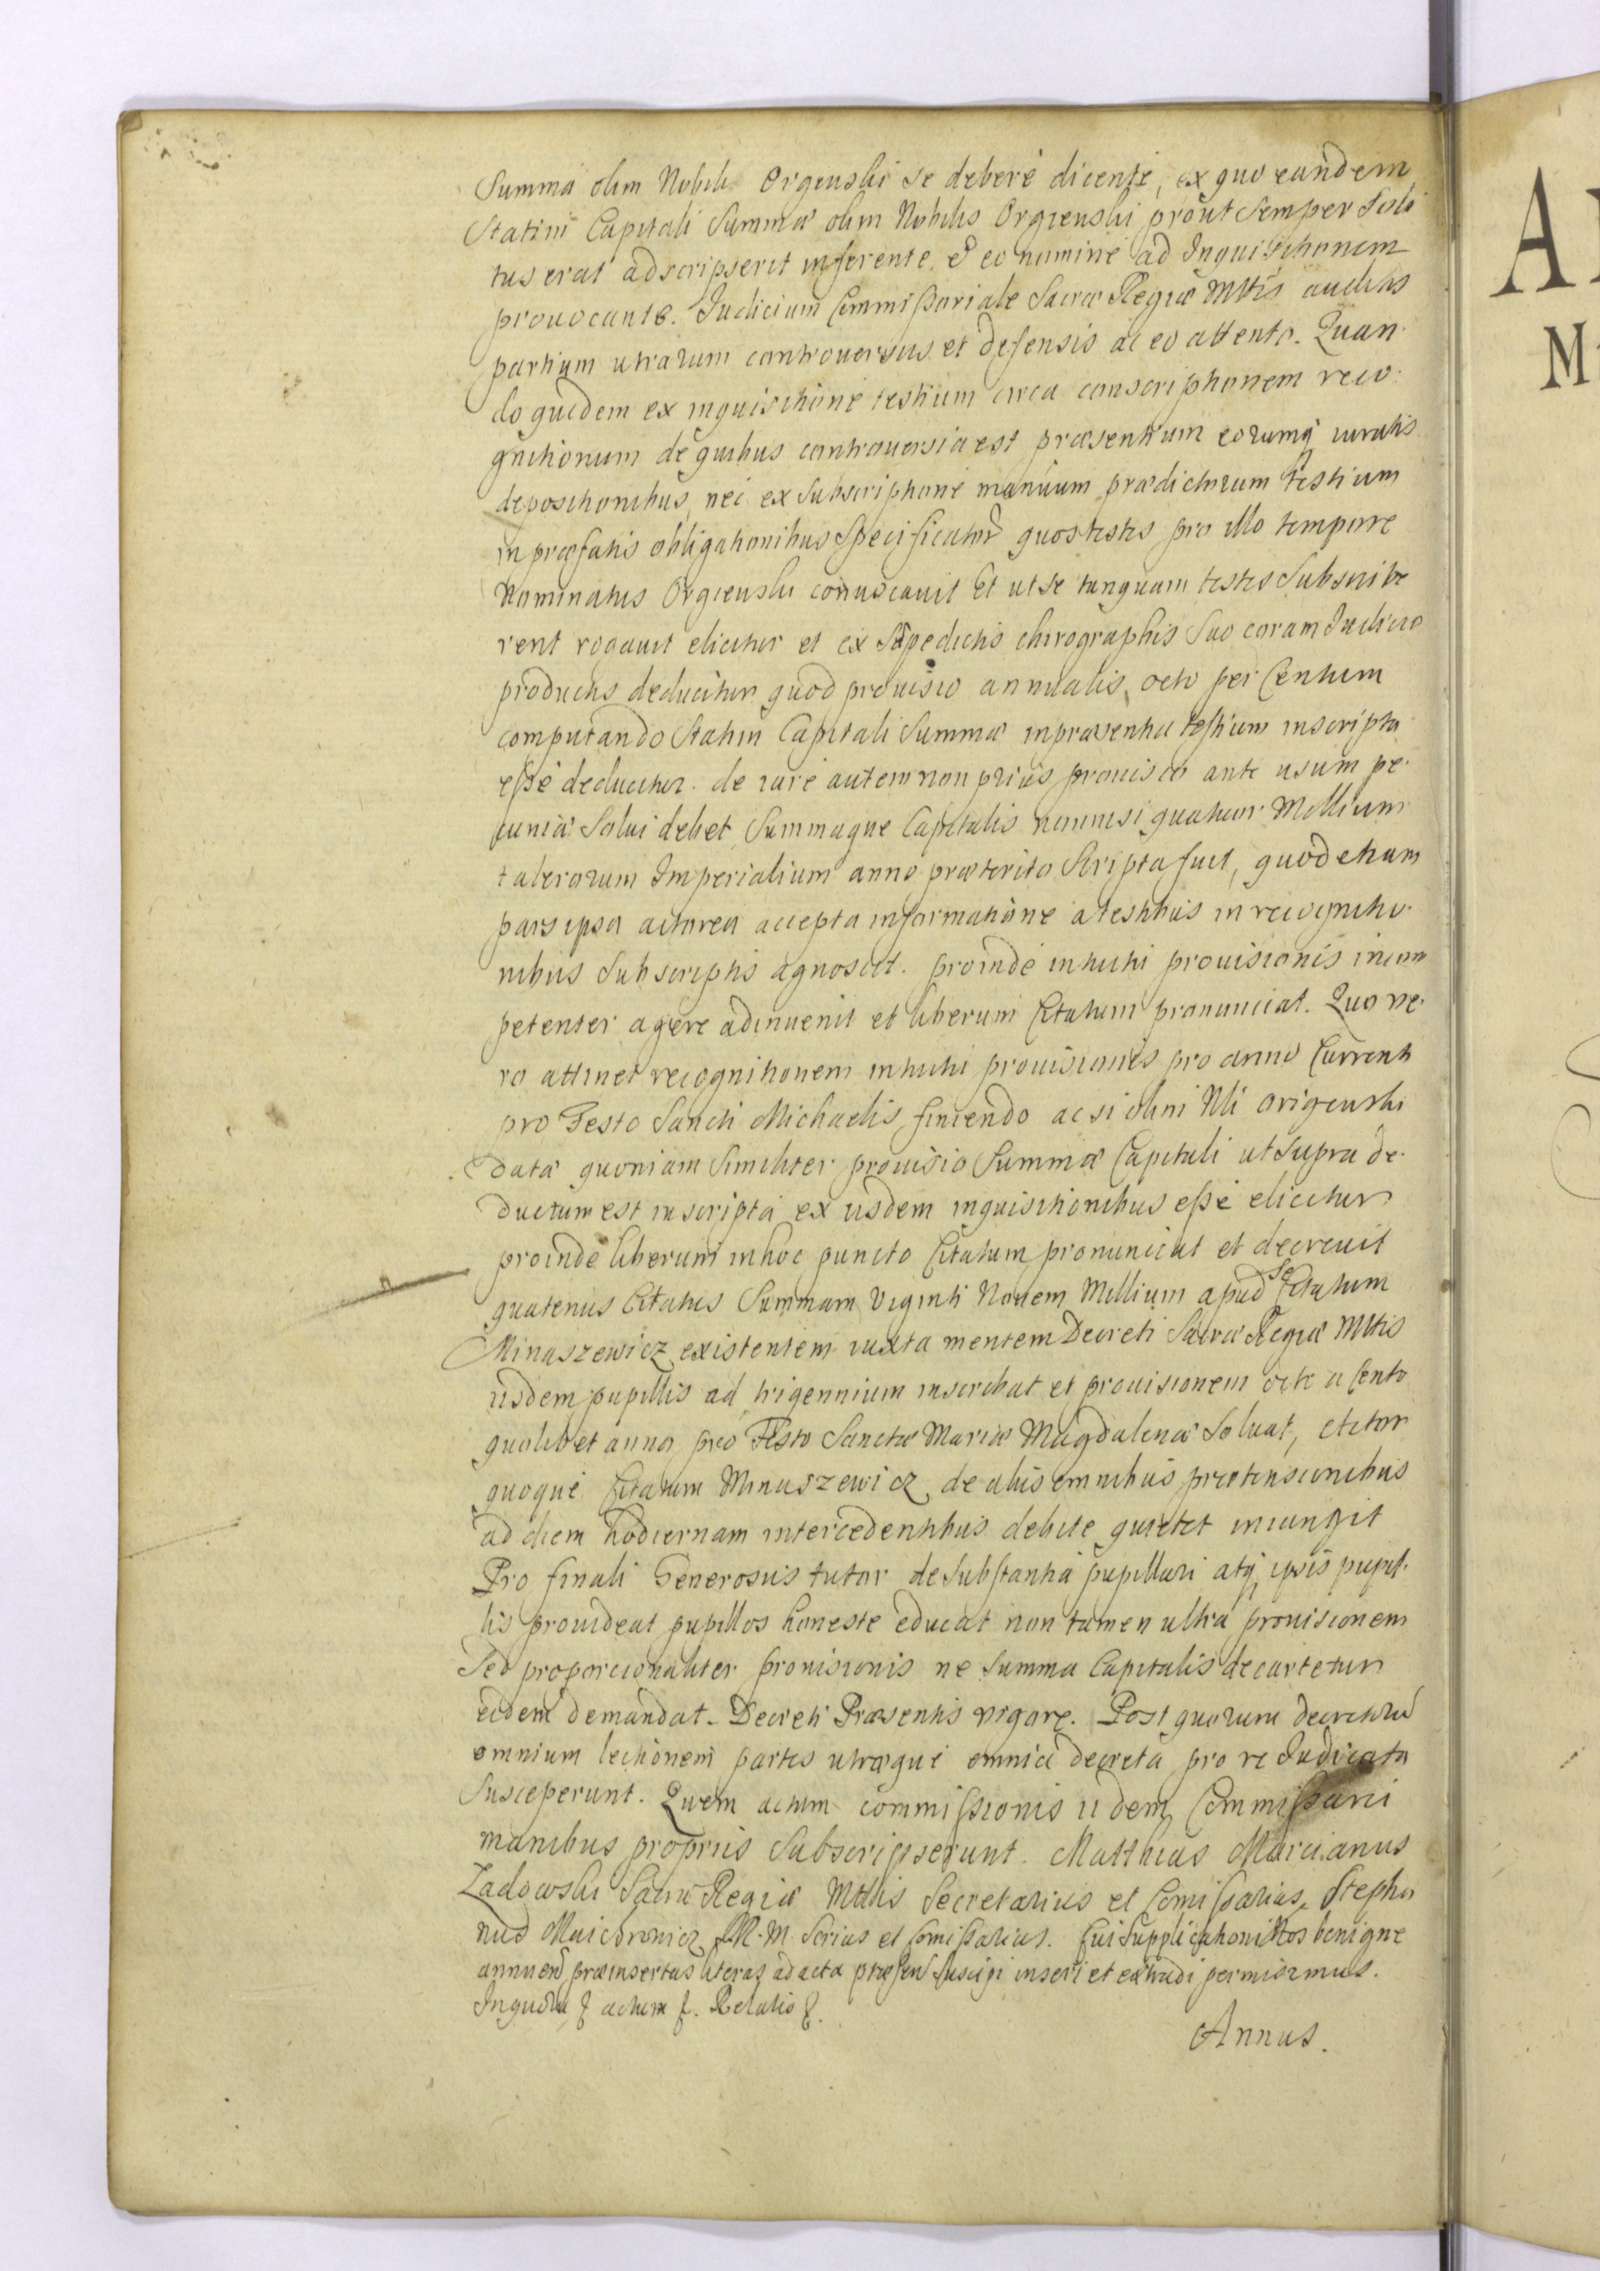 Summa olim Nobili Orgienski se debere dicente, ex quo eandem
Statim Capitali Summæ olim Nobilis Orgienski prout semper soli
tus erat adscripserit inferente. & eo nomine ad Inquisitionem
prouocante. Judicium Commissoriale Sacræ Regiæ Mttis auditis
partium utrarum controuersiis et defensis ac eo attento. Quan-
do quidem ex inquisitione testium circa conscriptionem reco-
gnitionum de quibus controuersia est præsentium eorumq iuratis
depositionibus, nec ex subscriptione manuum prædictorum testium
in præfatis obligationibus specificator quos testes pro illo tempore
Nominatus Orgienski conuocauit Et ut se tanquam testes Subscribe
rent rogauit elicitur et ex sæpedictis chirographis suo coram Judicio
productis deducitur quod prouisio annualis octo per Centum
computando Statim Capitali Summæ in præsentia testium inscripta
esse deducitur. de iure autem non prius prouisio ante usum pe-
cuniæ Solui debet, Summaque Capitalis nonnisi quatuor Millium
talerorum Imperialium anno præterito Scripta fuit, quod etiam
pars ipsa actorea accepta informatione a testibus in recognitio-
nibus Subscriptis agnoscit. proinde intuitu prouisionis incom
petenter agere adinuenit et liberum Citatum pronunciat. Quo ve-
ro attinet recognitionem intuitu prouisionis pro anno Currenti
pro Festo Sancti Michaelis finiendo ac si olim Nli Origenski
data quoniam similiter prouisio Summæ Capitali ut supra de-
ductum est inscripta ex iisdem inquisitionibus esse elicitur
proinde liberum in hoc puncto Citatum pronunciat et decreuit
quatenus Citatus Summam Viginti Nouem Millium apud se Citatum
Minaszewicz existentem iuxta mentem Decreti Sacræ Regiæ Mttis
iisdem pupillis ad trigennium inscribat et prouisionem octo a Cento
quolibet anno pro Festo Sanctæ Mariæ Magdalenæ Soluat, Actor
quoque Citatum Minaszewicz de aliis omnibus prætensionibus
ad diem hodiernam intercedentibus debite quietet iniungit
Pro finali Generosus tutor de Substantia pupillari atq ipsis pupil-
lis prouideat pupillos honeste educat non tamen ultra prouisionem
Sed proporcionaliter prouisionis ne Summa Capitalis decurtetur
eidem demandat. Decreti Præsentis vigore. Post quorum decretorũ
omnium lectionem partes utræque omnia decreta pro re Judicata
Susceperunt. Quem actum commissionis iidem Commissarii
manibus propriis Subscripserunt. Matthias Marcianus
Ladowski Sacræ Regiæ Mttis Secretarius et Comissarius, Stepha
nus Maicoronicz R. M. Scrius et Comissarius. Cui Supplicationi Nos benigne
annuen præinsertas literas ad acta præsen suscipi inseri et extradi permisimus.
In quoru actum. Relatio
Annus.